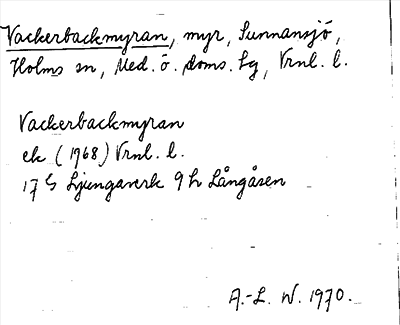 Vackerbackmyran, myr, Sunnansjö,
Holms sn, Med. ö. doms. lg, Vrnl. l.
Vackerbackmyran
ek (1968) Vrnl. l.
17 G Ljungaverk 9 h Långåsen
A.-L. W. 1970.